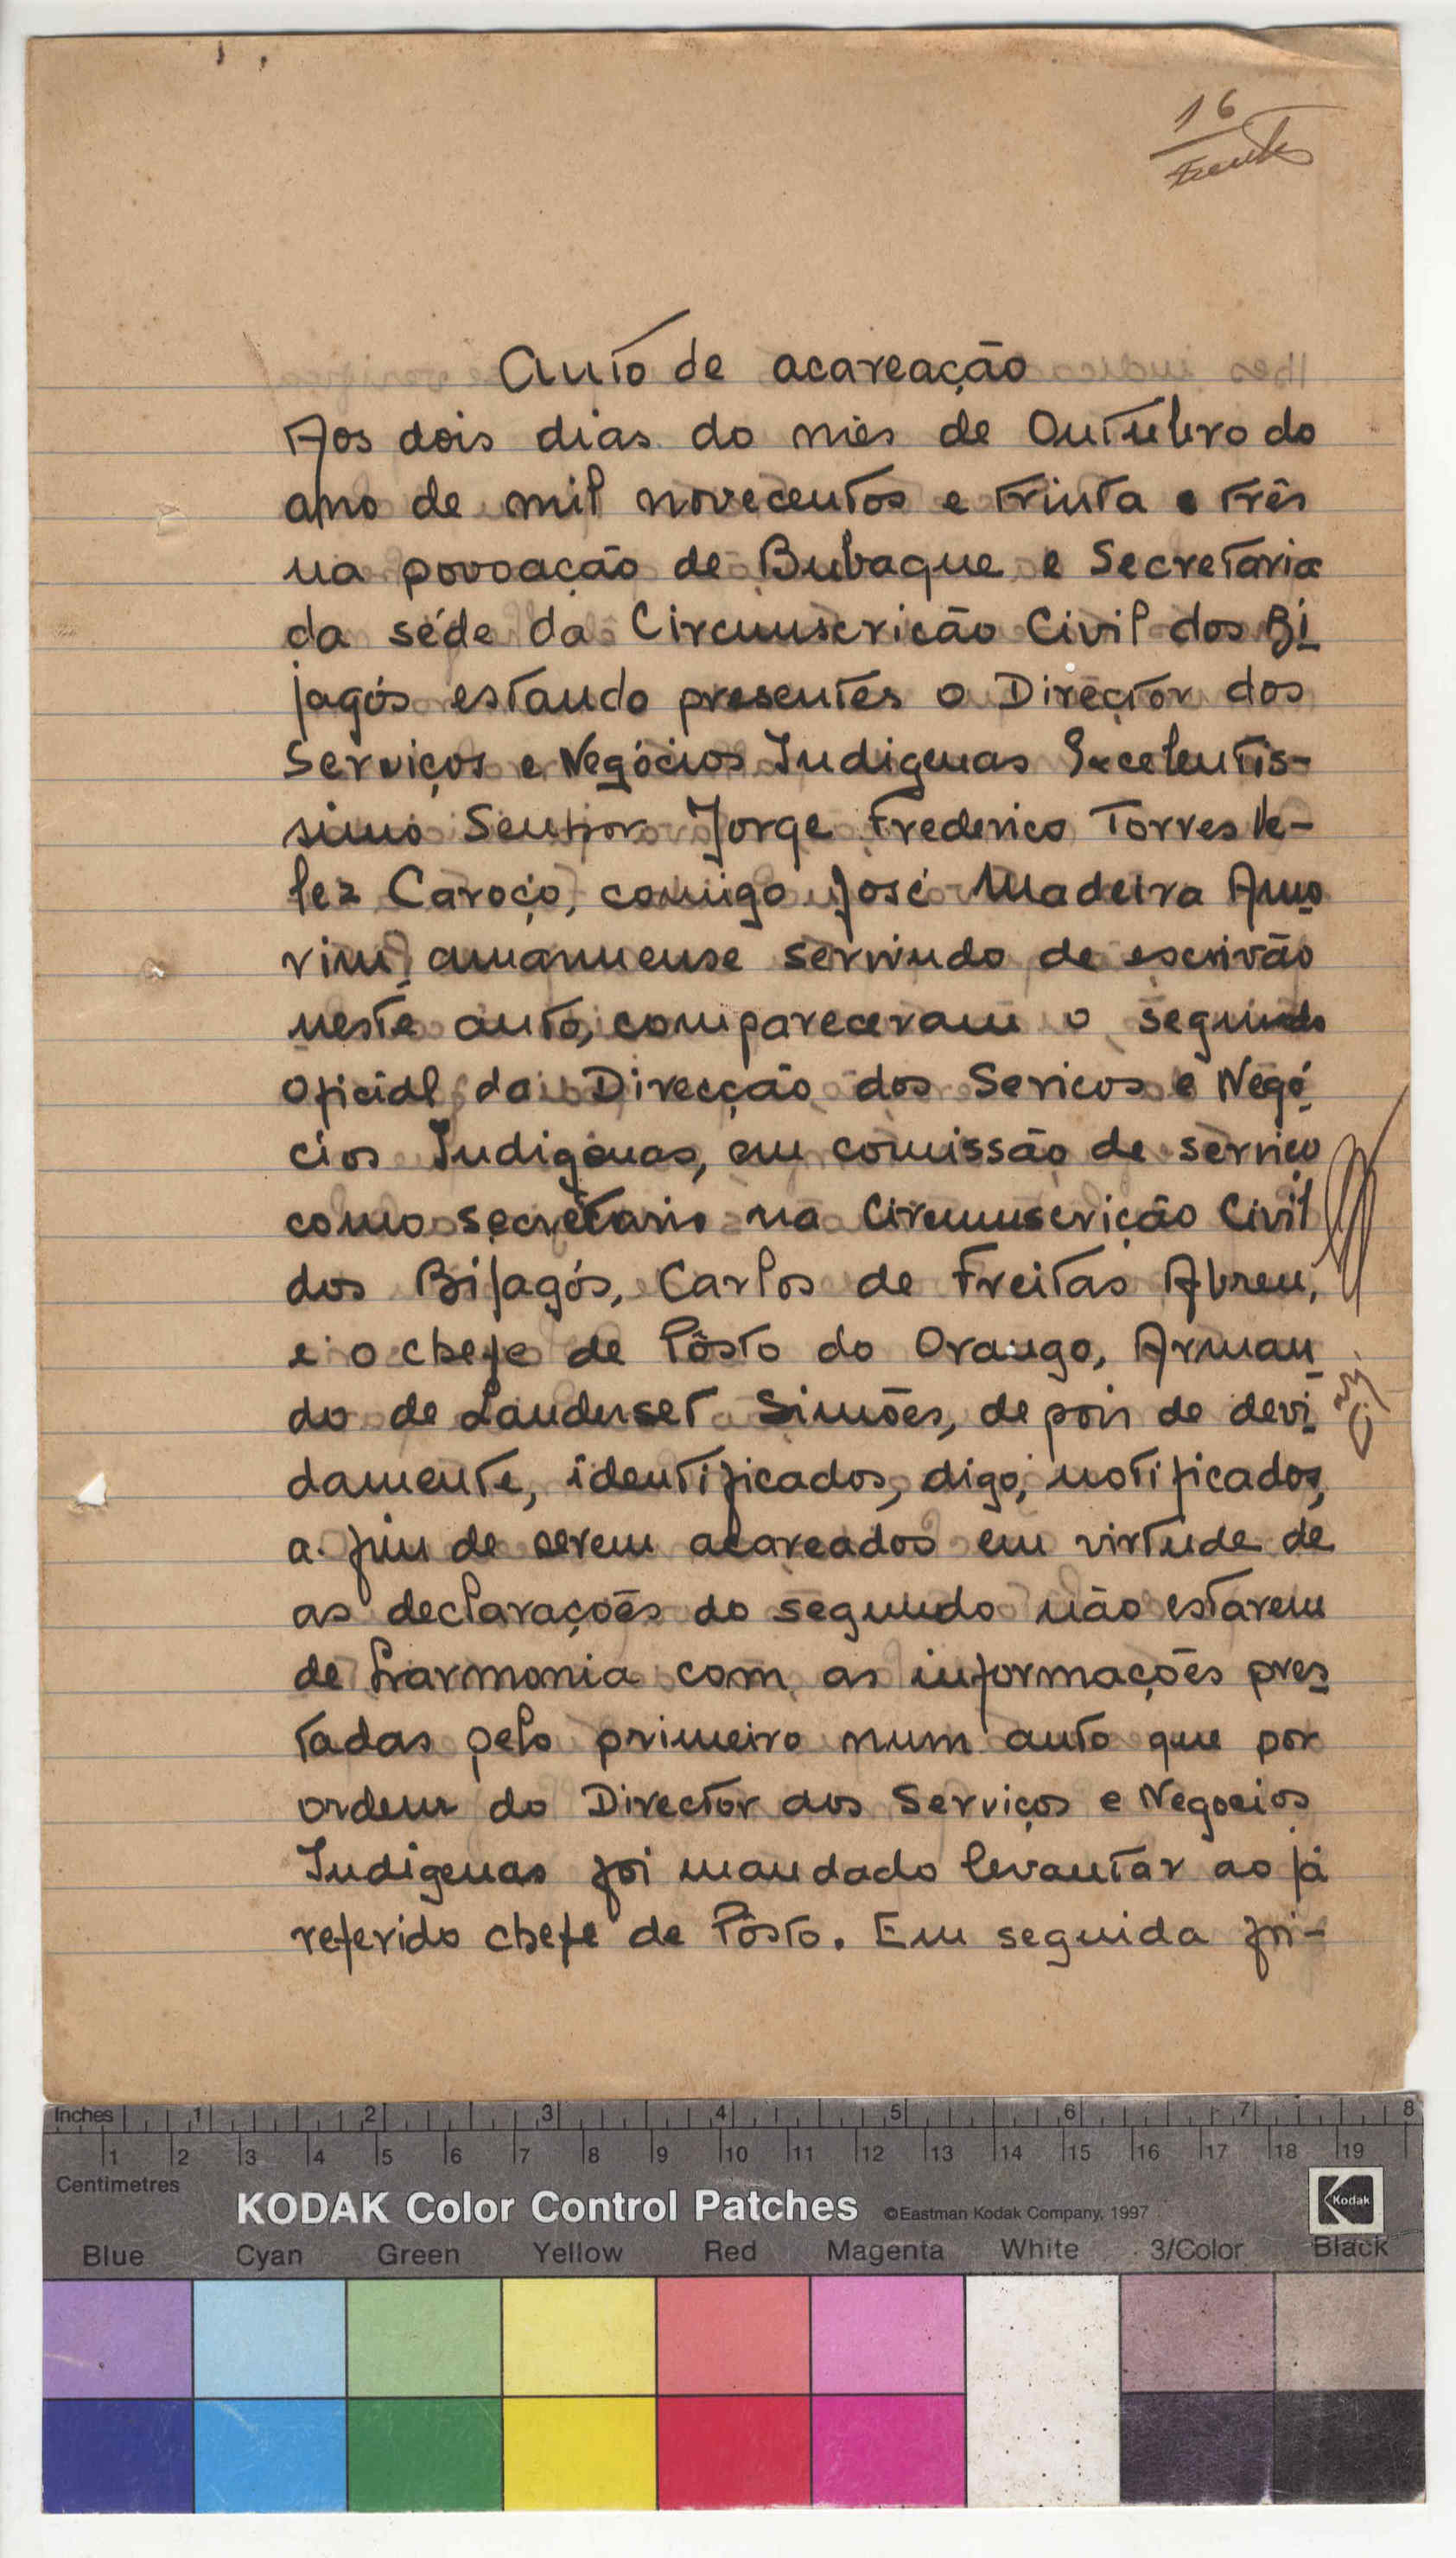 16
Auto de acareação
Aos dois dias do mês de Outubro do
ano de mil novecentos e trinta e três
na povoação de Bubaque e Secretaria
da séde da Circunscrição Civil dos Bi
jagós estando presentes o Director dos
Serviços e Negócios Indigenas Excelentis-
simo Senhor Jorge Frederico Torres Ve-
lez Caroço, comigo José Madeira Amo
rim, amanuense servindo de escrivão
neste auto, compareceram o segundo
oficial da Direcção dos Sericos e Negó
cios Indigenas, em comissão de serviço
como secretario na Circumscrição Civil
dos Bijagós, Carlos de Freitas Abreu,
e o chefe de Pôsto do Orango, Arman
do de Landerset Simões, depois de devi
damente, identificados, digo, notificados,
a fim de serem acareados em virtude de
as declarações do segundo não estarem
de harmonia com as informações pres
tadas pelo primeiro num auto que por
ordem do Director dos Serviços e Negocios
Indigenas foi mandado levantar ao já
referido chefe de Pôsto. Em seguida foi-
Inches 1 2 3 4 5 6 7 8
1 2 3 4 5 6 7 8 9 10 11 12 13 14 15 16 17 18 19
Centimetres
KODAK Color Control Patches ©Eastman Kodak Company, 1997 Kodak
Blue Cyan Green Yellow Red Magenta White 3/Color Black